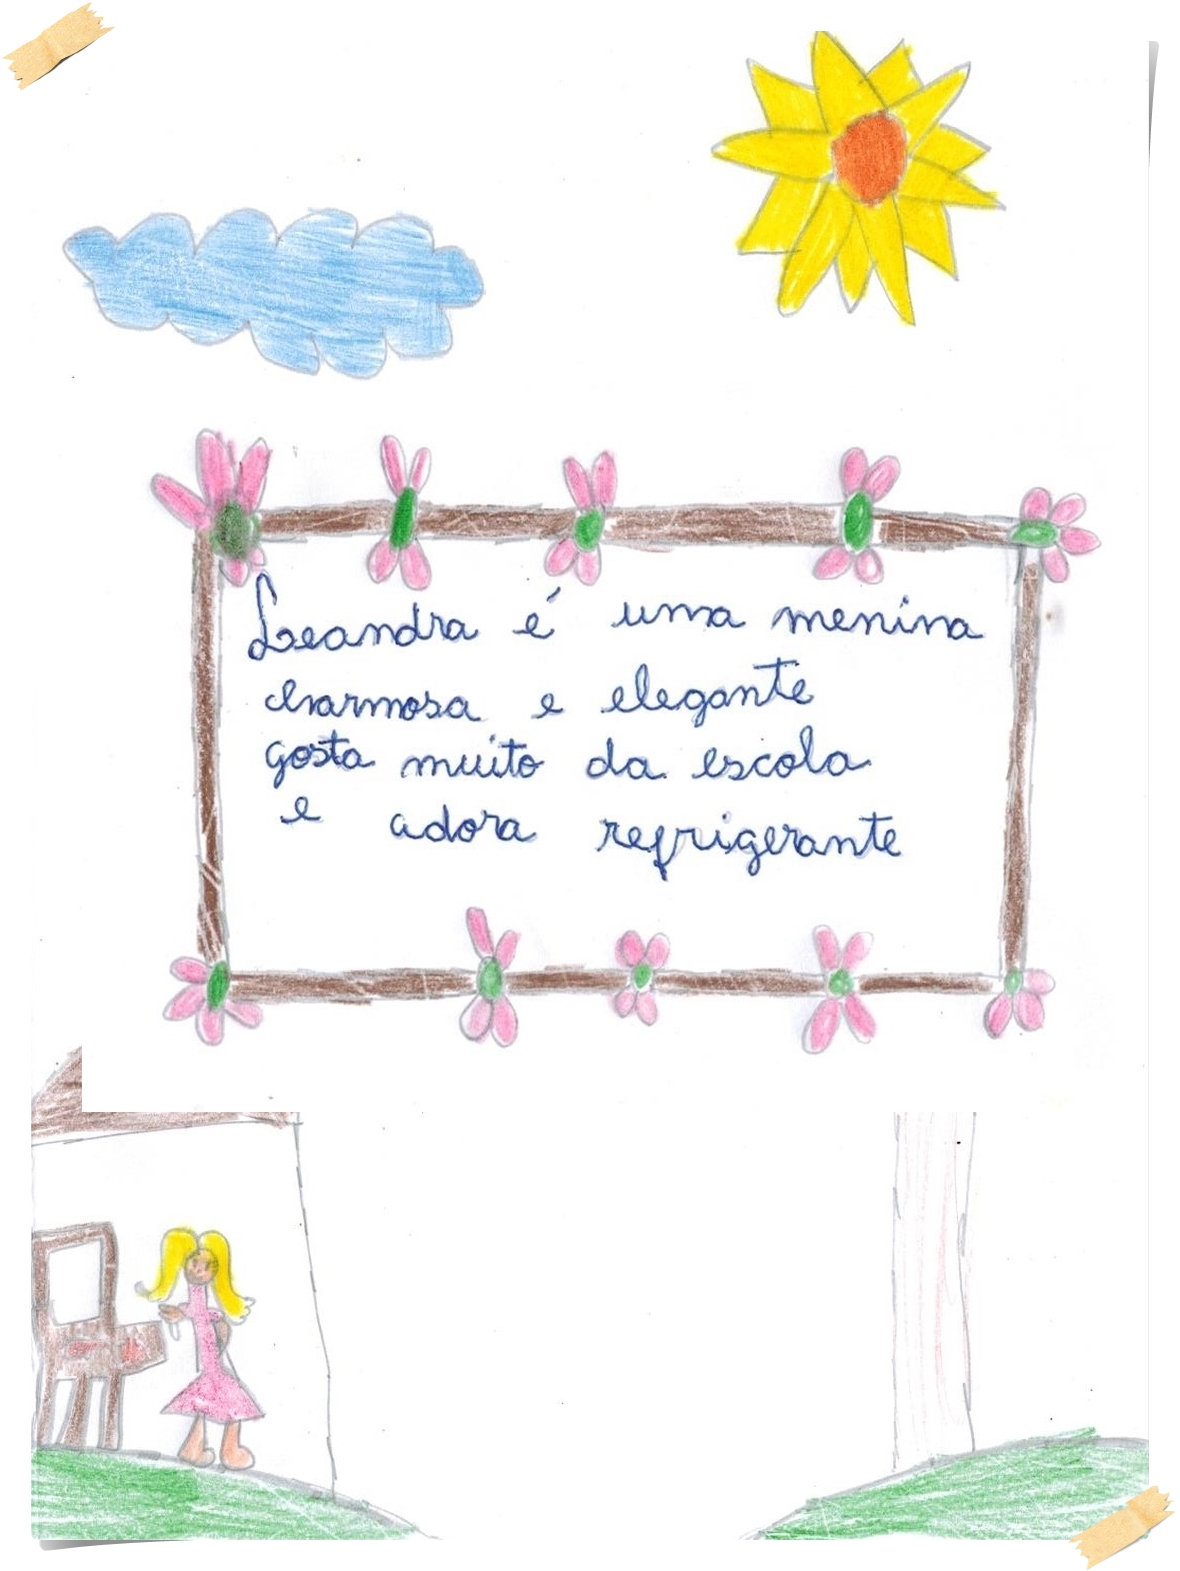 Leandra é uma menina
charmosa e elegante
gosta muito da escola
e adora refrigerante